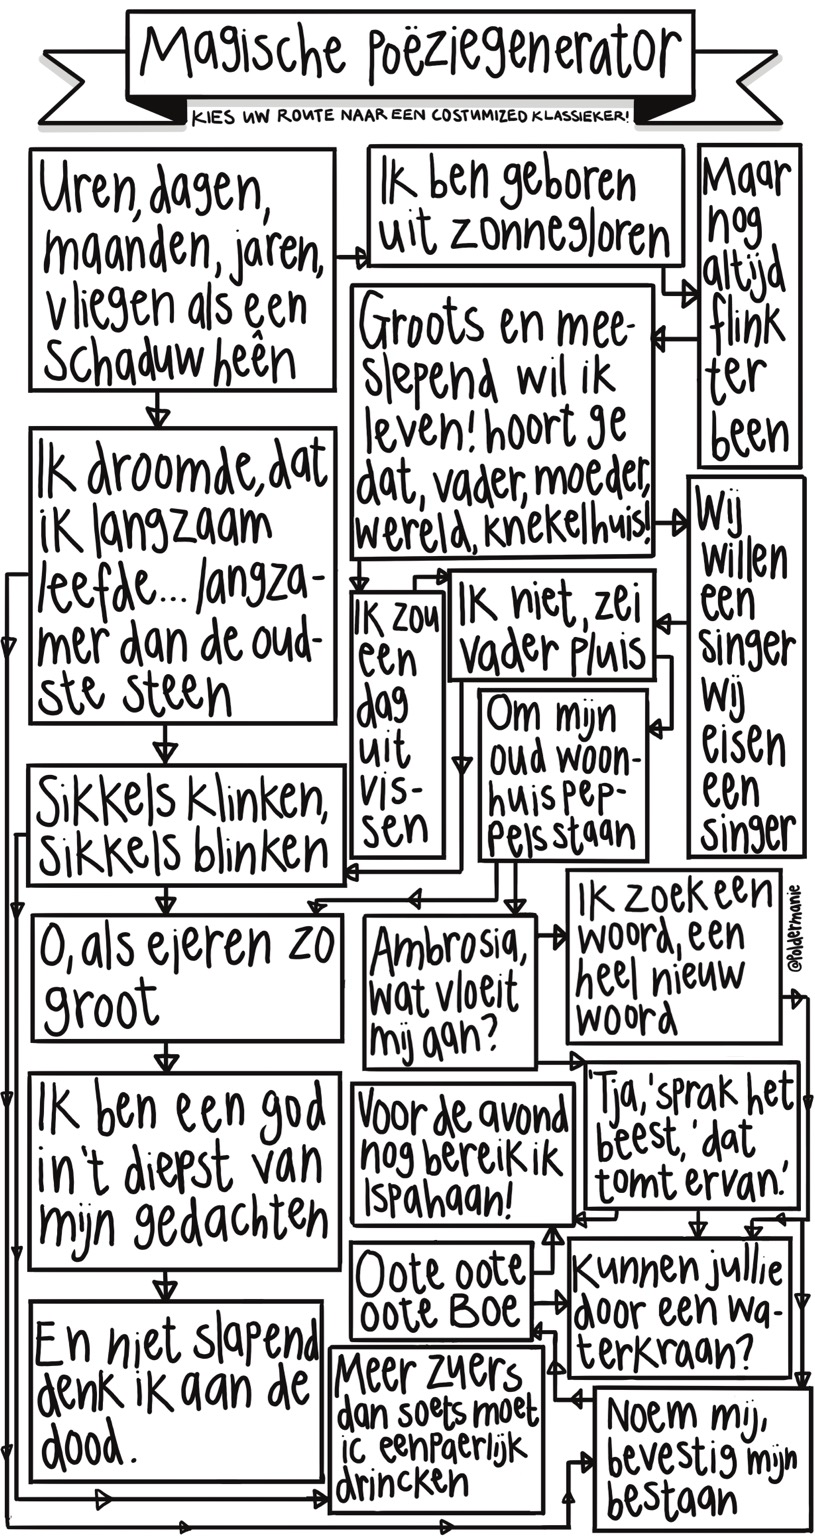 Magische Poëziegenerator
KIES UW ROUTE NAAR EEN COSTUMIZED KLASSIEKER!
Uren, dagen,
maanden, jaren,
vliegen als een
schaduw heên
Ik ben geboren
uit zonnegloren
Maar
nog
altijd
flink
ter
been
Groots en mee-
slepend wil ik
leven! hoort ge
dat, vader, moeder,
wereld, knekelhuis!
Ik droomde, dat
ik langzaam
leefde... langza-
mer dan de oud-
ste steen
Wij
willen
een
singer
wij
eisen
een
singer
Ik zou
een
dag
uit
vis-
sen
Ik niet, zei
vader pluis
Om mijn
oud woon-
huis pep-
pels staan
Sikkels klinken,
sikkels blinken
O, als ejeren zo
groot
Ambrosia,
wat vloeit
mij aan?
Ik zoek een
woord, een
heel nieuw
woord
@Poldermanie
Ik ben een god
in't diepst van
mijn gedachten
Voor de avond
nog bereik ik
Ispahaan!
'Tja,' sprak het
beest, 'dat
tomt ervan.'
En niet slapend
denk ik aan de
dood.
Oote oote
oote Boe
Kunnen jullie
door een wa-
terkraan?
Meer zuers
dan soets moet
ic eenpaerlijk
drincken
Noem mij,
bevestig mijn
bestaan